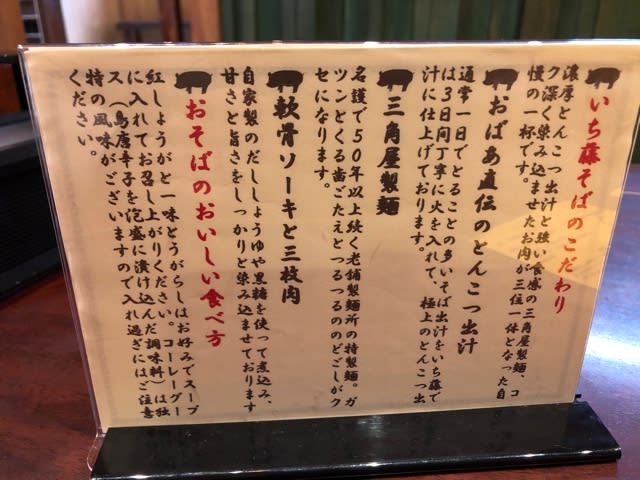 いち藤そばのこだわり
濃厚とんこつ出汁と強い食感の三角屋製麺、コ
ク深く染み込ませたお肉が三位一体となった自
慢の一杯です。
おばあ直伝のとんこつ出汁
通常一日でとることの多いそば出汁をいち藤で
は3日間丁寧に火を入れて、極上のとんこつ出
汁に仕上げております。
三角屋製麺
名護で50年以上続く老舗製麺所の特製麺。ガ
ツンとくる歯ごたえとつるつるのどごしがク
セになります。
軟骨ソーキと三枚肉
自家製のだししょうゆや黒糖を使って煮込み、
甘さと旨さをしっかりと染み込ませております
おそばのおいしい食べ方
紅しょうがと一味とうがらしはお好みでスープ
に入れてお召し上がりください。コーレーグー
ス(島唐辛子を泡盛に漬け込んだ調味料)は独
特の風味がございますので入れ過ぎにはご注意
ください。